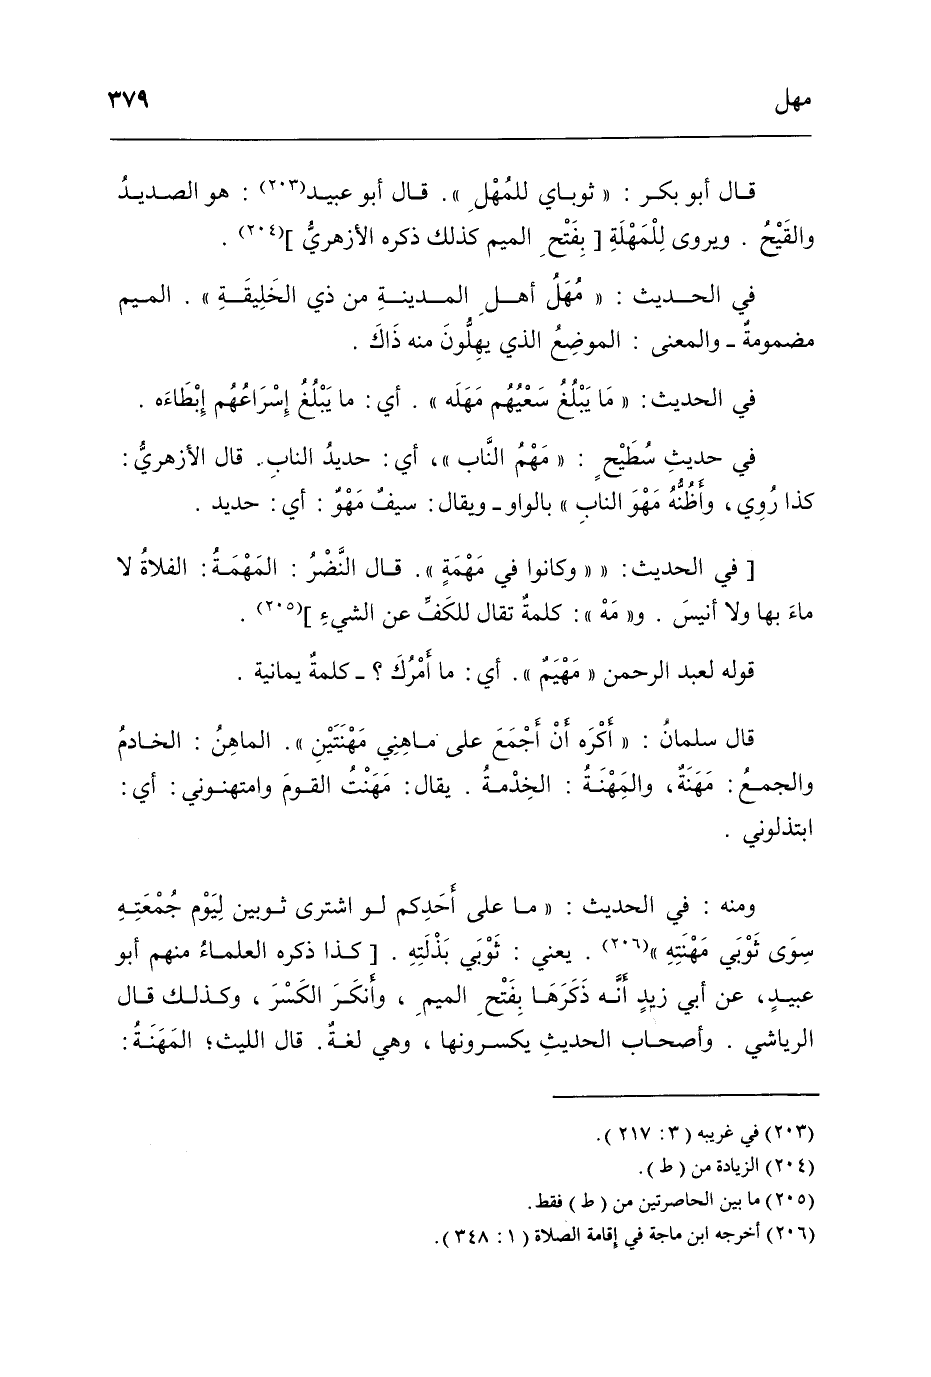 مهل ٣٧٩
قال أبو بكر : « ثوباي للمُهْلِ ». قال أبو عبيد(٢٠٣) : هو الصديدُ
والقَيْحُ . ويروى لِلْمَهْلَةِ [ بِفَتْحِ الميم كذلك ذكره الأزهريُّ ](٢٠٤) .
في الحديث : « مُهَلُ أهلِ المدينةِ من ذي الخَلِيفَةِ » . الميم
مضمومةٌ ـ والمعنى : الموضِعُ الذي يهِلُّونَ منه ذَاكَ .
في الحديث: « مَا يَبْلُغُ سَعْيُهُم مَهَلَه » . أي: ما يَبْلُغُ إِسْرَاعُهُم إِبْطَاءَه .
في حديثِ سُطَيْحٍ : « مَهْمُ النَّاب »، أي: حديدُ النابِ. قال الأزهريُّ:
كذا رُوِي، وأَظُنُّهُ مَهْوَ النابِ » بالواو ـ ويقال: سيفٌ مَهْوٌ : أي: حديد .
[ في الحديث: « « وكانوا في مَهْمَةٍ ». قال النَّضْرُ : المَهْمَةُ: الفلاةُ لا
ماءَ بها ولا أنيسَ . و« مَهْ »: كلمةٌ تقال للكَفِّ عن الشيءِ ](٢٠٥) .
قوله لعبد الرحمن « مَهْيَمْ ». أي: ما أَمْرُكَ ؟ ـ كلمةٌ يمانية .
قال سلمانُ : « أَكْرَه أَنْ أَجْمَعَ على ماهِنِي مَهْنَتَيْنِ ». الماهِنُ : الخادمُ
والجمعُ: مَهَنَةٌ، والمِهْنَةُ : الخِذْمةُ . يقال: مَهَنْتُ القومَ وامتهنوني: أي:
ابتذلوني .
ومنه : في الحديث : « ما على أَحَدِكم لو اشترى ثوبين لِيَوْمِ جُمْعَتِهِ
سِوَى ثَوْبَي مَهْنَتِهِ »(٢٠٦) . يعني : ثَوْبَي بَذْلَتِهِ . [ كذا ذكره العلماءُ منهم أبو
عبيدٍ، عن أبي زيدٍ أَنَّه ذَكَرَهَا بِفَتْحِ الميمِ ، وأَنكَرَ الكَسْرَ ، وكذلك قال
الرياشي . وأصحاب الحديثِ يكسرونها ، وهي لغةٌ. قال الليث؛ المَهَنَةُ:
(٢٠٣) في غريبه ( ٣: ٢١٧ ).
(٢٠٤) الزيادة من ( ط ).
(٢٠٥) ما بين الحاصرتين من ( ط ) فقط.
(٢٠٦) أخرجه ابن ماجة في إقامة الصلاة ( ١ : ٣٤٨ ).